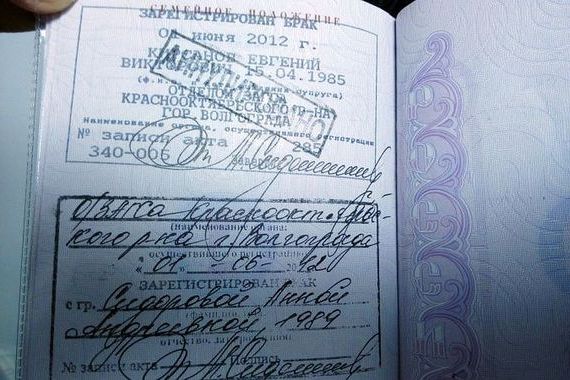 СЕМЕЙНОЕ ПОЛОЖЕНИЕ
ЗАРЕГИСТРИРОВАН БРАК
01 июня 2012 г.
ЕВГЕНИЙ
15.04.1985
ОТДЕЛОМ
КРАСНООКТЯБРЬСКОГО Р-НА
ГОР. ВОЛГОГРАДА
Наименование органа, осуществившего регистрацию
№ записи акта 285
340-006 Заверено
О/ЗАГСа Краснооктябрьс-
кого р-на г. Волгограда
(наименование органа,
осуществившего регистрацию)
"01" 06 2012
ЗАРЕГИСТРИРОВАН БРАК
с гр. Сидоровой Анной
Андреевной, 1989
отчество, дата рождения
№ записи акта Подпись